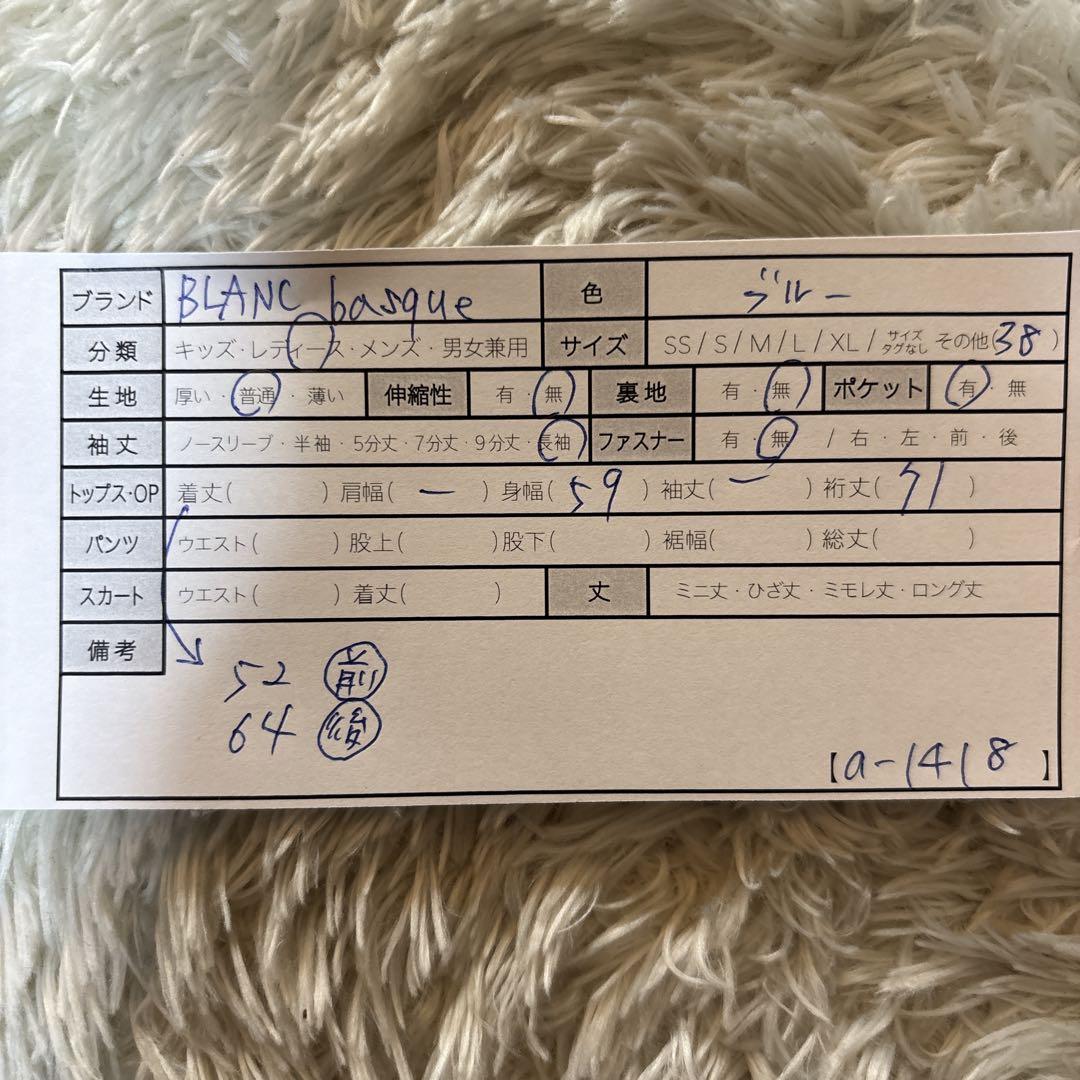 ブランド BLANC basque 色 ブルー
分類 キッズ・レディース・メンズ・男女兼用 サイズ SS/S/M/L/XL/サイズタグなし その他(38)
生地 厚い・普通・薄い 伸縮性 有・無 裏地 有・無 ポケット 有・無
袖丈 ノースリーブ・半袖・5分丈・7分丈・9分丈・長袖 ファスナー 有・無 /右・左・前・後
トップス・OP 着丈( )肩幅( ー )身幅( 59 )袖丈( ー )裄丈( 71 )
パンツ ウエスト( )股上( )股下( )裾幅( )総丈( )
スカート ウエスト( )着丈( ) 丈 ミニ丈・ひざ丈・ミモレ丈・ロング丈
備考
52 前
64 後
【a-1418】